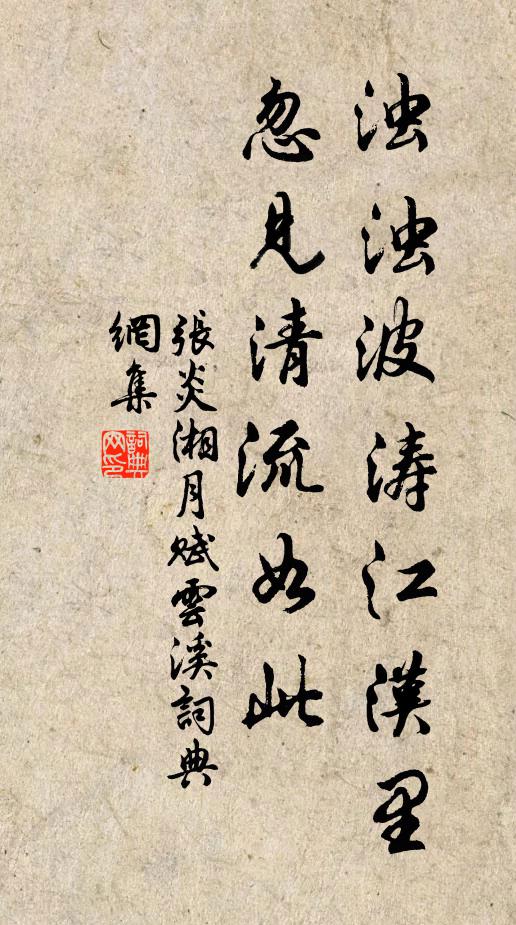 浊浊波涛江汉里
忽见清流如此
張炎湘月賦雲溪詞典
網集
詞典网印